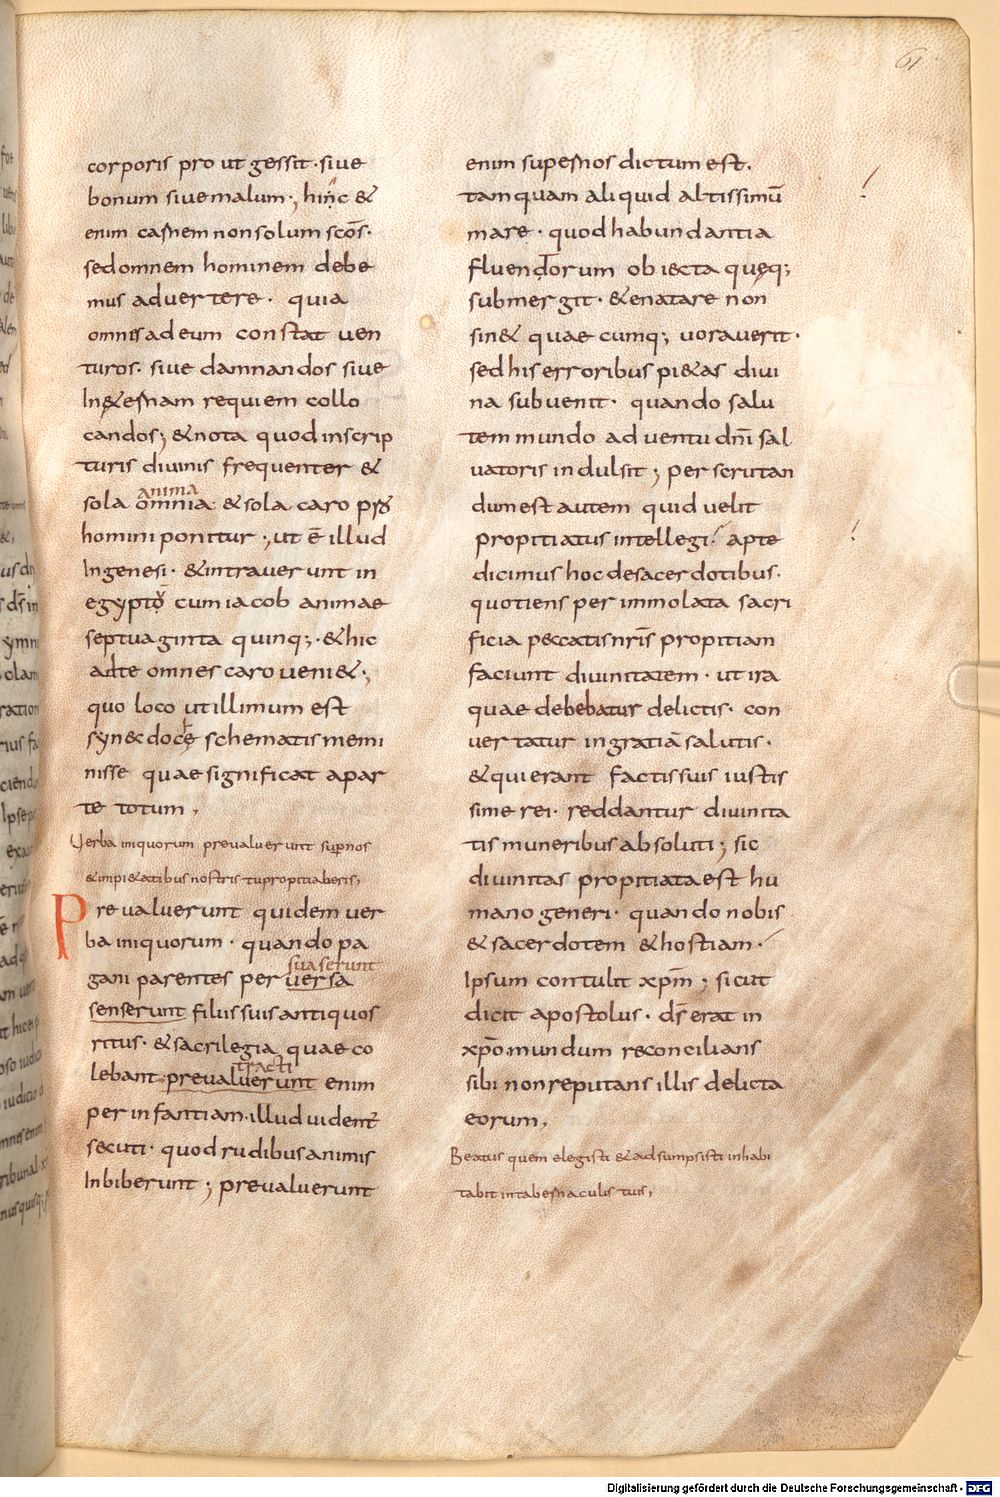 61
corporis pro ut gessit· siue
bonum siue malum·, hinc &
enim carnem non solum scōs·
sed omnem hominem debe
mus aduertere· quia
omnis ad eum constat uen
turos· siue damnandos siue
In &ernam requiem collo
candos; & nota quod in scrip
turis diuinis frequenter &
anima
sola omnia· & sola caro pro
homini ponitur·, ut ē illud
In genesi· & intrauerunt in
egypto cum iacob animae
septuaginta quinq;· & hic
ad te omnes caro ueni&·,
quo loco ut illimum est
synecdoche schematis memi
nisse quae significat a par
te totum,
Uerba iniquorum preualuerunt sup nos
& impi&atibus nostris tu propitiaberis,
Preualuerunt quidem uer
ba iniquorum· quando pa
suaserunt
gani parentes per uersa
senserunt filiis suis antiquos
ritus· & sacrilegia quae co
tracti
lebant· preualuerunt enim
per infantiam· illud uident
secuti· quod rudibus animis
Inbiberunt; preualuerunt
enim super nos dictum est,
tam quam aliquid altissimū
mare· quod habundantia
fluentorum obiecta queq;
submergit· & enatare non
sin& quae cumq; uorauerit·
sed his erroribus pi&as diui
na subuenit· quando salu
tem mundo aduentu dn̄i sal
uatoris indulsit; per scrutan
dum est autem quid uelit
propitiatus intellegi· apte
dicimus hoc de sacerdotibus·
quotiens per immolata sacri
ficia peccatis nr̄is propitiam
faciunt diuinitatem· ut ira
quae debebatur delictis· con
uertatur in gratiā salutis·
& qui erant factis suis iustis
sime rei· reddantur diuinita
tis muneribus absoluti; sic
diuinitas propitiata est hu
mano generi· quando nobis
& sacerdotem & hostiam·
Ipsum contulit xp̄m; sicut
dicit apostolus· ds̄ erat in
xp̄o mundum reconcilians
sibi non reputans illis delicta
eorum,
Beatus quem elegisti & adsumpsisti inhabi
tabit in tabernaculis tuis,
Digitalisierung gefördert durch die Deutsche Forschungsgemeinschaft - DFG